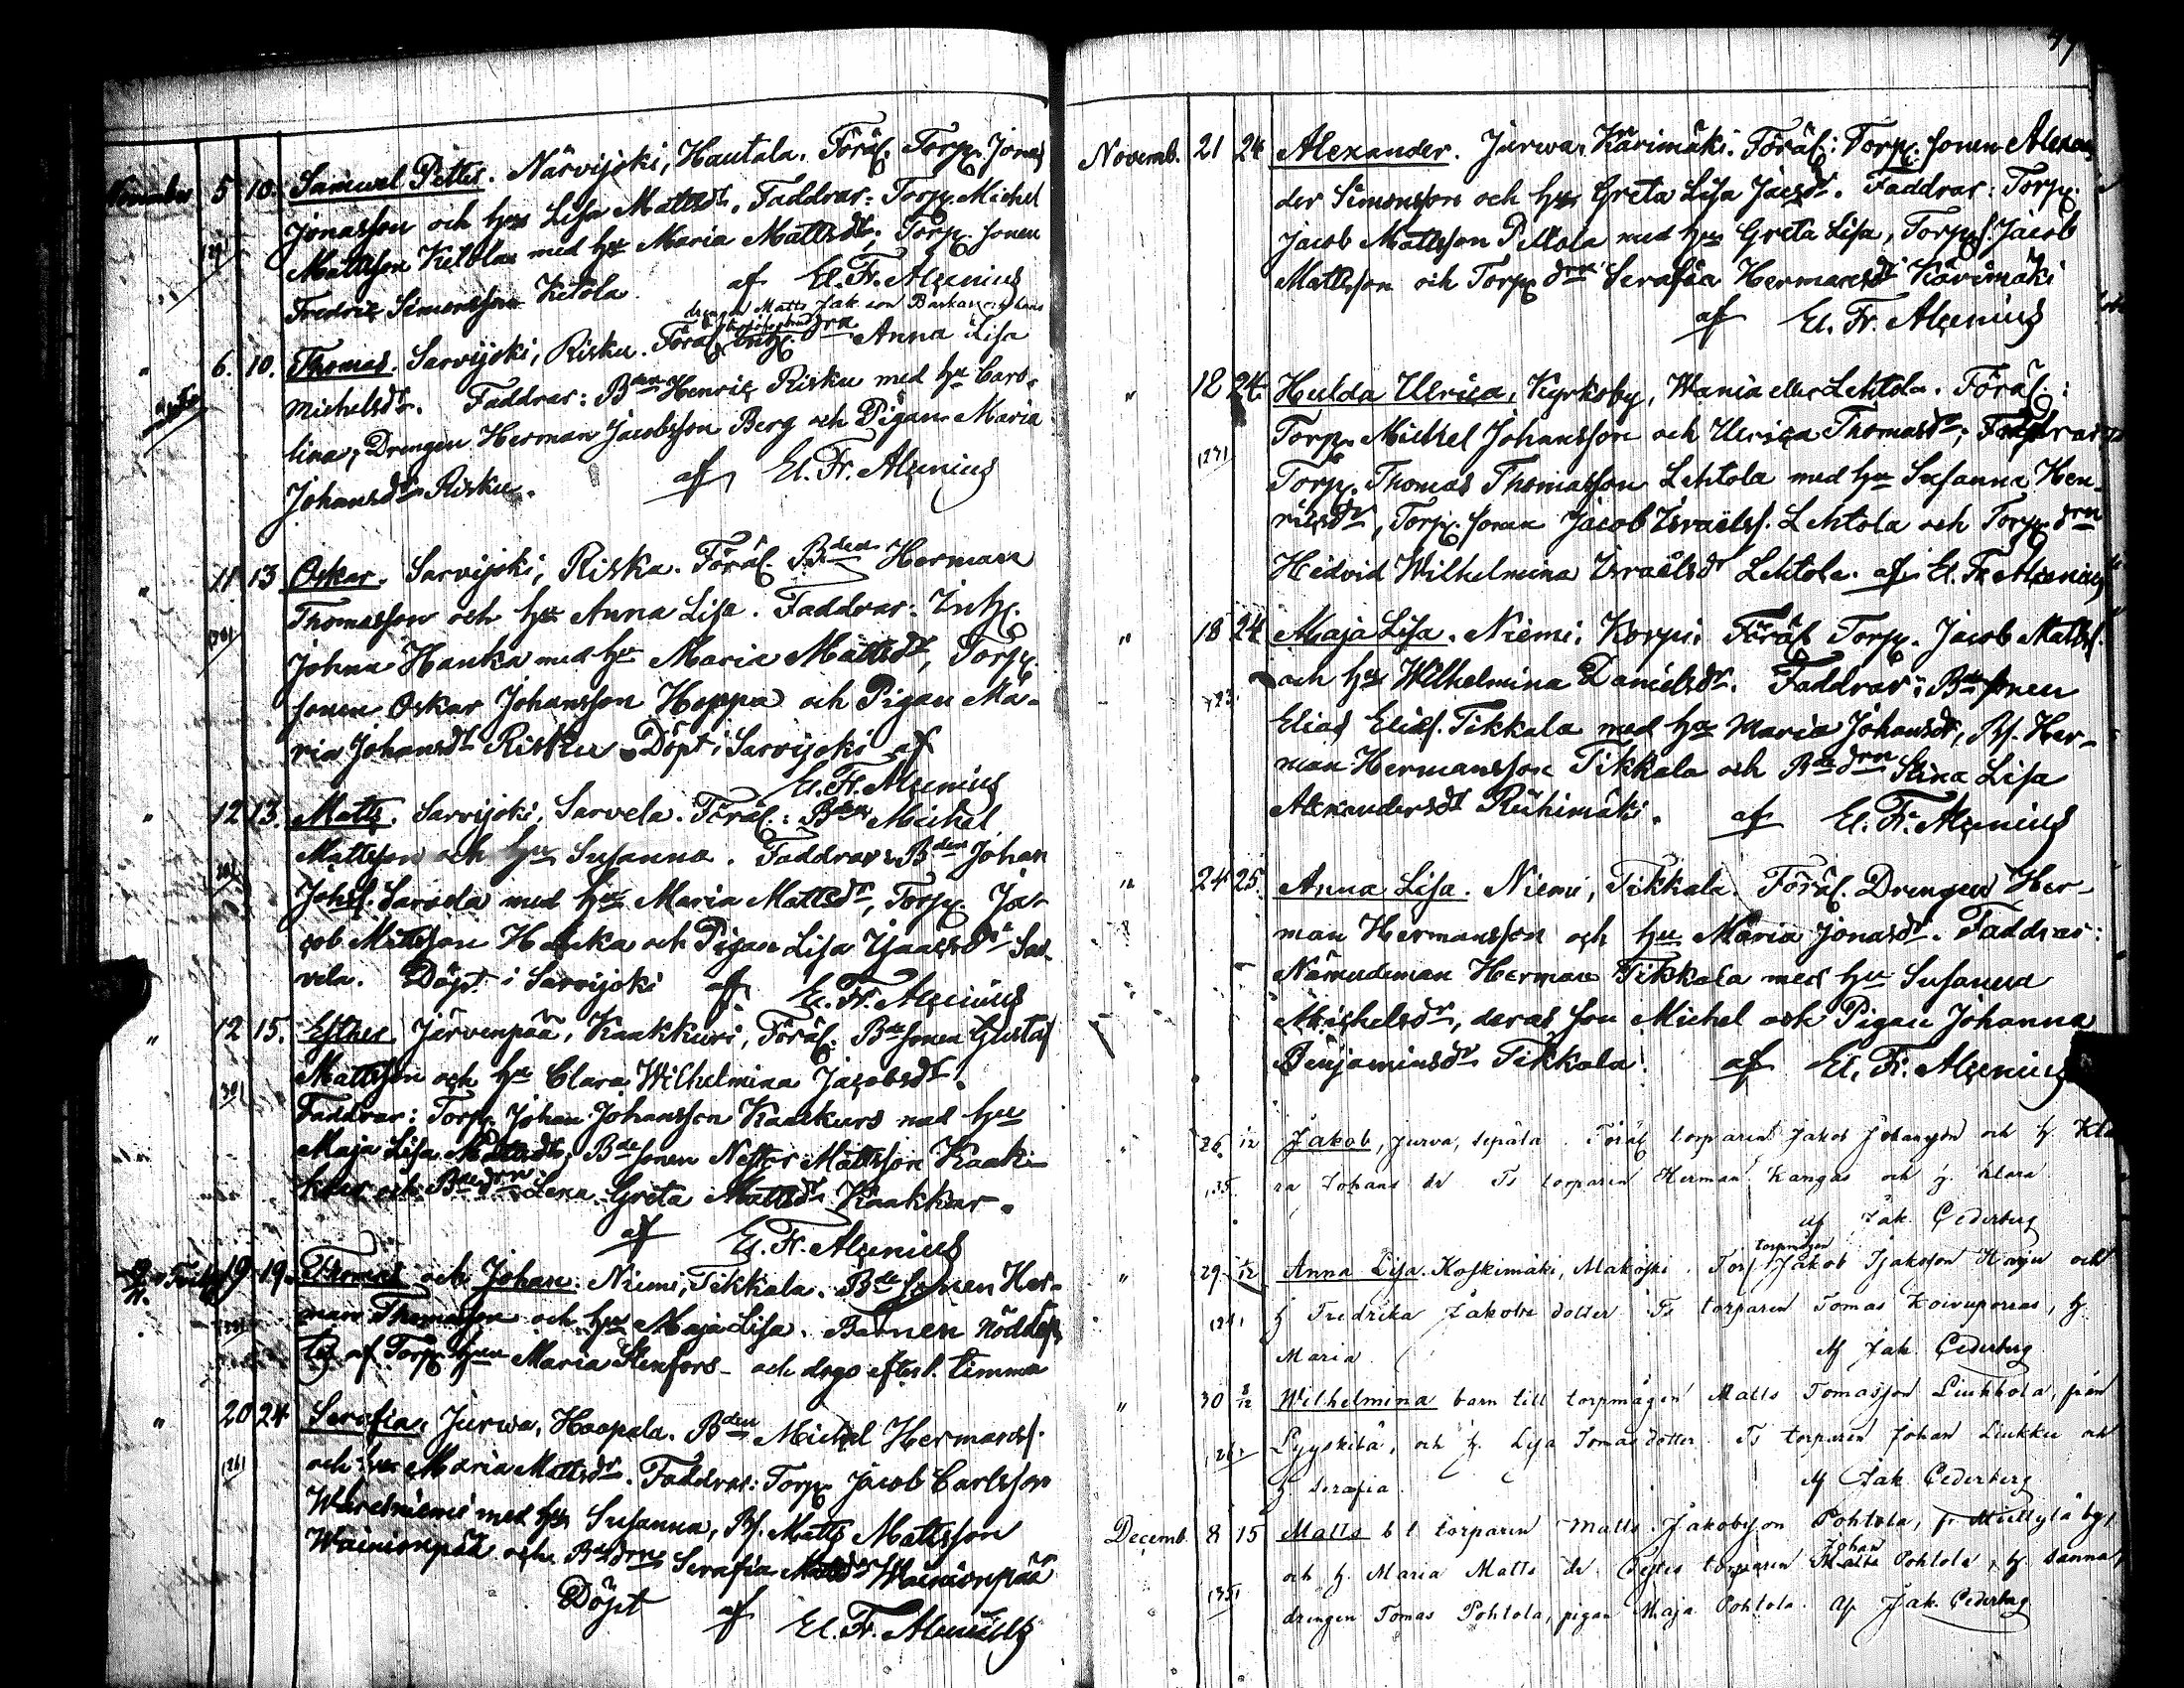 November 5 10. Samuel Petter. Närvijoki, Hautala. Föräl. Torp. Jonas
Jonasson och hu Lisa Mattsdr. Faddrar: Torp. Michel
Mattsson Ketola med hu Maria Mattsdr, Torp. sonen
Fredric Simonsson Ketola af El. Fr. Alcenius
drengen Matts Jak son
" 6. 10. Thomas. Sarvijoki, Risku. Föräl. Anna Lisa
Michelsdr. Faddrar: Bden Henric Risku med hu Caro-
lina, Drengen Herman Jacobsson Berg och Pigan Maria
Johansdr Risku. af El. Fr. Alcenius
" 11 13 Oskar. Sarvijoki, Risku. Föräl. Bden Herman
Thomasson och hu Anna Lisa. Faddrar: Inh.
Johan Hauka med hu Maria Mattsdr, Torp.
sonen Oskar Johansson Hoppa och Pigan Ma-
ria Johansdr Risku. Döpt i Sarvijoki af
El. Fr. Alcenius
" 12 13. Matts. Sarvijoki, Sarvela. Föräl.: Bden Michel
Mattsson och hu Susanna. Faddrar: Bden Johan
Johss. Sarvela med hu Maria Mattsdr, Torp. Ja-
cob Mattsson Hauka och Pigan Lisa Isaacsdr Sar-
vela. Döpt i Sarvijoki af El. Fr. Alcenius
" 12 15. Esther, Järvenpää, Kaakkuri, Föräl: Bdesonen Gustaf
Mattsson och hu Clara Wilhelmina Jacobsdr.
Faddrar: Torp. Johan Johansson Kaakkuri med hu
Maja Lisa Mattsdr, Bdesonen Nestor Mattsson Kaak-
kuri och Bdedrn Lena Greta Mattsdr Kaakkur.
af El. Fr. Alcenius
19 19. Thomas och Johan. Niemi, Tikkala. Bdesonen Her-
man Thomasson och hu Maja Lisa. Barnen nöddöp-
tes af Torp. hun Maria Stenfors och dogo efter 1. timma
" 20 24 Serafia. Jurwa, Haapala. Bden Michel Hermanss.
och hu Maria Mattsdr. Faddrar: Torp. Jacob Carlsson
med hu Susanna, Bs. Matts Mattsson
Wainionpää och Bdedrn Serafia Mattsdr Wainionpää
Döpt af El. Fr. Alcenius
Novemb. 21 24 Alexander. Jurwa, Kärimäki. Föräl: Torp. sonen Alexan-
der Simonsson och hu Greta Lisa Jacsdr. Faddrar: Torp.
Jacob Mattsson Pellola med hu Greta Lisa, Torps. Jacob
Mattsson och Torp. drn Serafia Hermansdr Kärimäki
af El. Fr. Alcenius
" 18 24. Hulda Ulrica, Kyrkoby, Wania eller Lehtola. Föräl.:
Torp. Michel Johansson och Ulrica Thomasdr, Faddrar:
Torp. Thomas Thomasson Lehtola med hu Susanna Hen-
ricsdr, Torp. sonen Jacob Israelss. Lehtola och Torp. drn
Hedvid Wilhelmina Israelsdr Lehtola. af El. Fr. Alcenius
" 18 24 Maja Lisa. Niemi, Korpi. Föräl. Torp. Jacob Matts.
och hu Wilhelmina Danielsdr. Faddrar: Bdesonen
Elias Eliass. Tikkala med hu Maria Johansdr, Bs. Her-
man Hermansson Tikkala och Bdedrn Stina Lisa
Alexandersdr Riihimäki. af El. Fr. Alcenius
" 24 25. Anna Lisa. Niemi, Tikkala. Föräl. Drengen Her-
man Hermansson och hu Maria Jonasdr. Faddrar:
Nämndeman Herman Tikkala med hu Susanna
Michelsdr, deras son Michel och Pigan Johanna
Benjaminsdr Tikkala. af El. Fr. Alcenius
" 26. Jakob, Jurva, Sepälä. Föräl torparen Jakob Johansson och h. Kla
ra Johans dr Ts torparen Herman Kangas och h. Klara
af Jak. Cederberg
" 29. Anna Lisa. Koskimäki, Makoski. torpmågen Jakob Isaksson och
h Fredrika Jakobs dotter Ts torparen Tomas Koivuporras, h.
Maria Af Jak Cederberg
" 30 8/12 Wilhelmina barn till torpmågen Matts Tomasson Liukkola, från
och h. Lisa Tomas dotter. Ts torparen Johan Liukku och
h Serafia. Af Jak Cederberg
Decemb. 8 15 Matts b t torparen Matts Jakobsson Pohtola, fr. by,
och h. Maria Matts dr torparen Johan Pohtola, h. Sanna,
drengen Tomas Pohtola, pigan Maja Pohtola. Af Jak. Cederberg